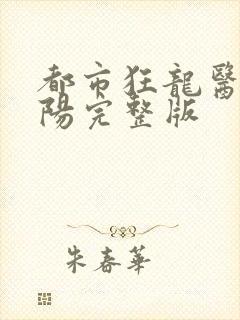 都市狂龍醫
陽完整版
朱春華